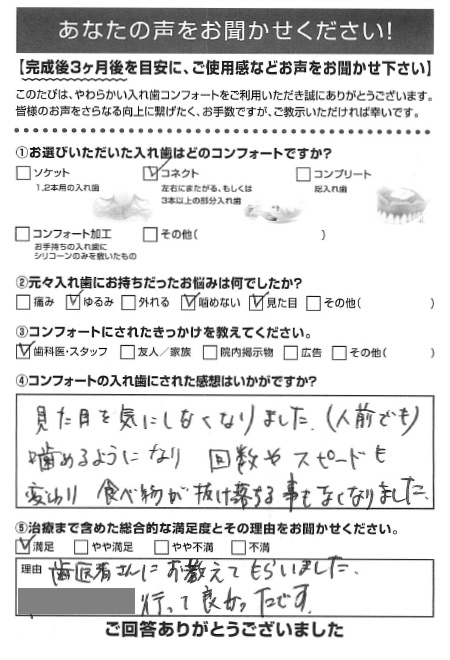 あなたの声をお聞かせください!
【完成後3ヶ月後を目安に、ご使用感などお声をお聞かせ下さい】
このたびは、やわらかい入れ歯コンフォートをご利用いただき誠にありがとうございます。
皆様のお声をさらなる向上に繋げたく、お手数ですが、ご教示いただければ幸いです。
①お選びいただいた入れ歯はどのコンフォートですか?
ソケット コネクト コンプリート
1,2本用の入れ歯 左右にまたがる、もしくは 総入れ歯
3本以上の部分入れ歯
コンフォート加工 その他( )
お手持ちの入れ歯に
シリコーンのみを敷いたもの
②元々入れ歯にお持ちだったお悩みは何でしたか?
痛み ゆるみ 外れる 噛めない 見た目 その他( )
③コンフォートにされたきっかけを教えてください。
歯科医・スタッフ 友人/家族 院内掲示物 広告 その他( )
④コンフォートの入れ歯にされた感想はいかがですか?
見た目を気にしなくなりました。(人前でも)
噛めるようになり 回数やスピードも
変わり 食べ物が抜け落ちる事もなくなりました。
⑤治療まで含めた総合的な満足度とその理由をお聞かせください。
満足 やや満足 やや不満 不満
理由 歯医者さんにお教えてもらいました。
行って良かったです。
ご回答ありがとうございました